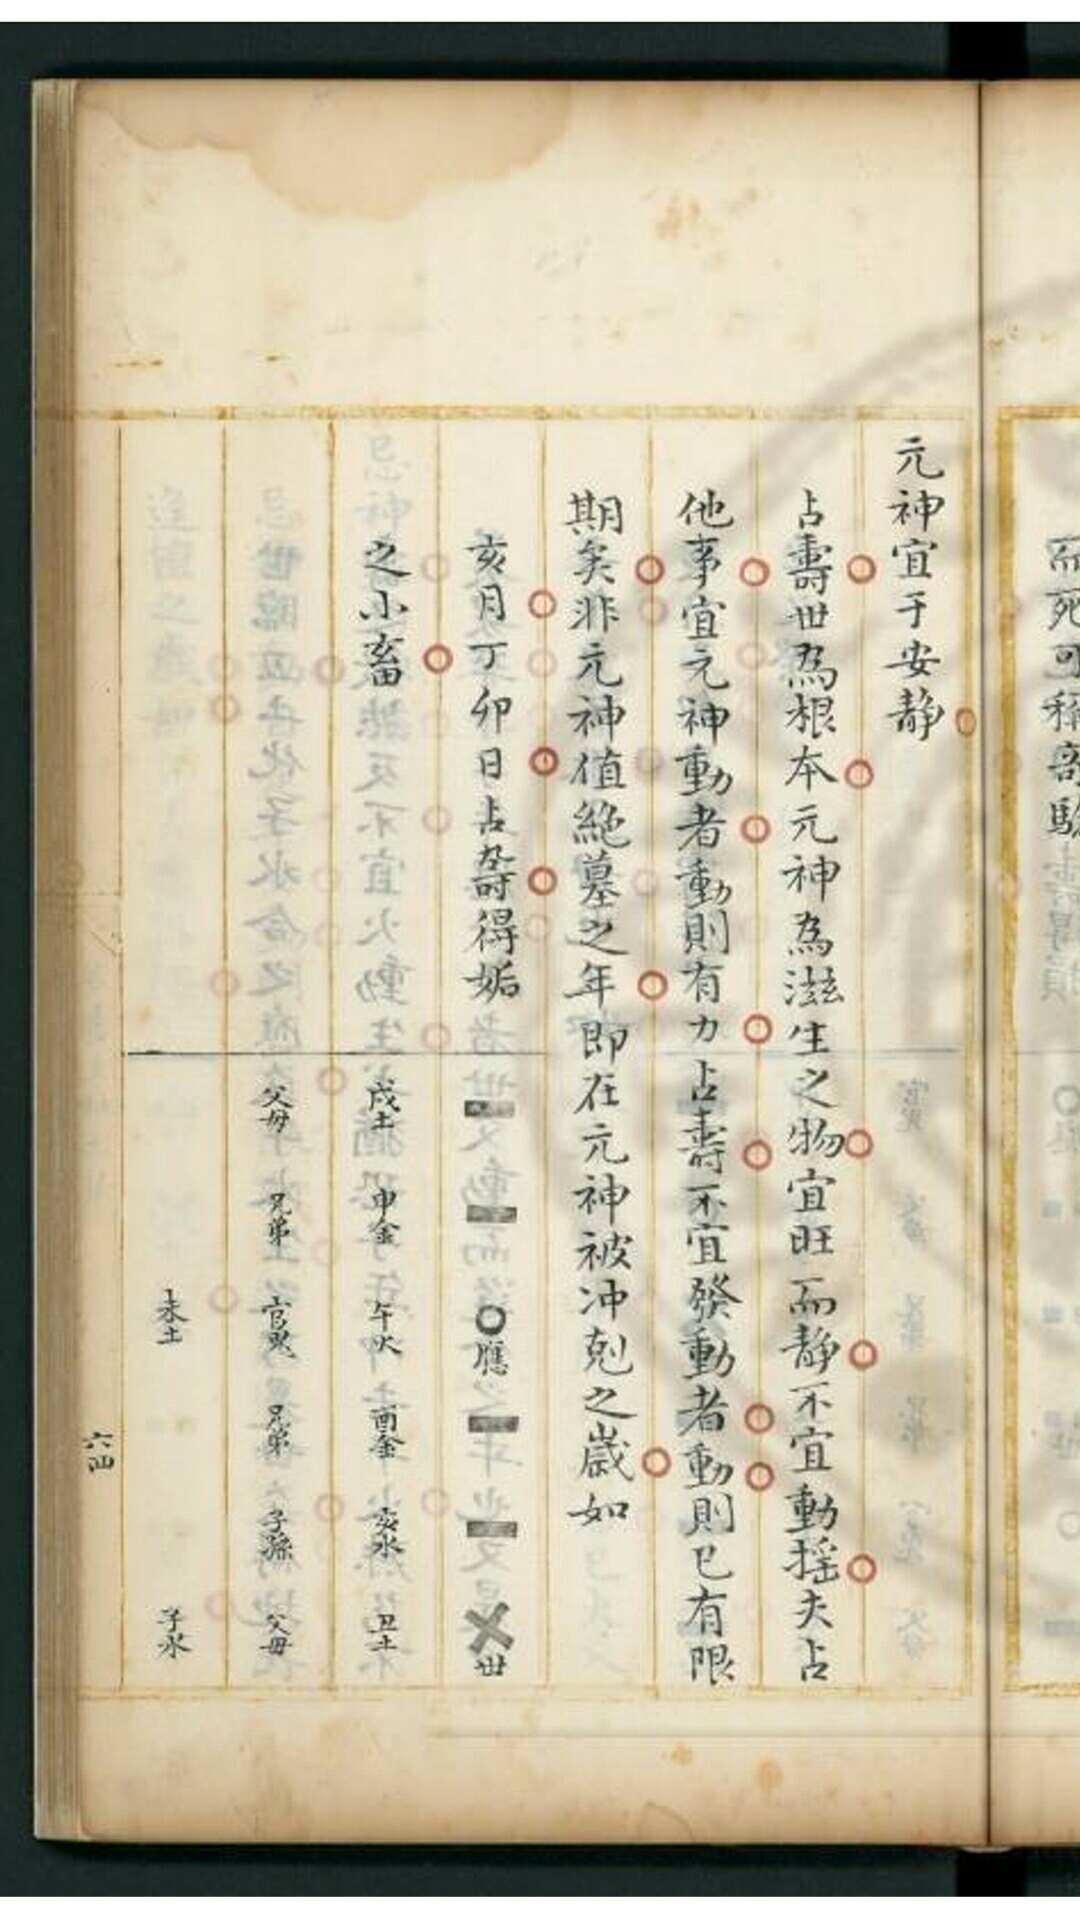 元神宜于安靜
占壽世為根本元神為滋生之物宜旺而靜不宜動搖夫占
他事宜元神動者動則有力占壽不宜發動者動則已有限
期矣非元神值絕墓之年即在元神被冲剋之歲如
亥月丁卯日占壽得姤
應 世
之小畜
戌土 申金 午火 酉金 亥水 丑土
父母 兄弟 官鬼 兄弟 子孫 父母
未土 子水
而死可稱奇驗